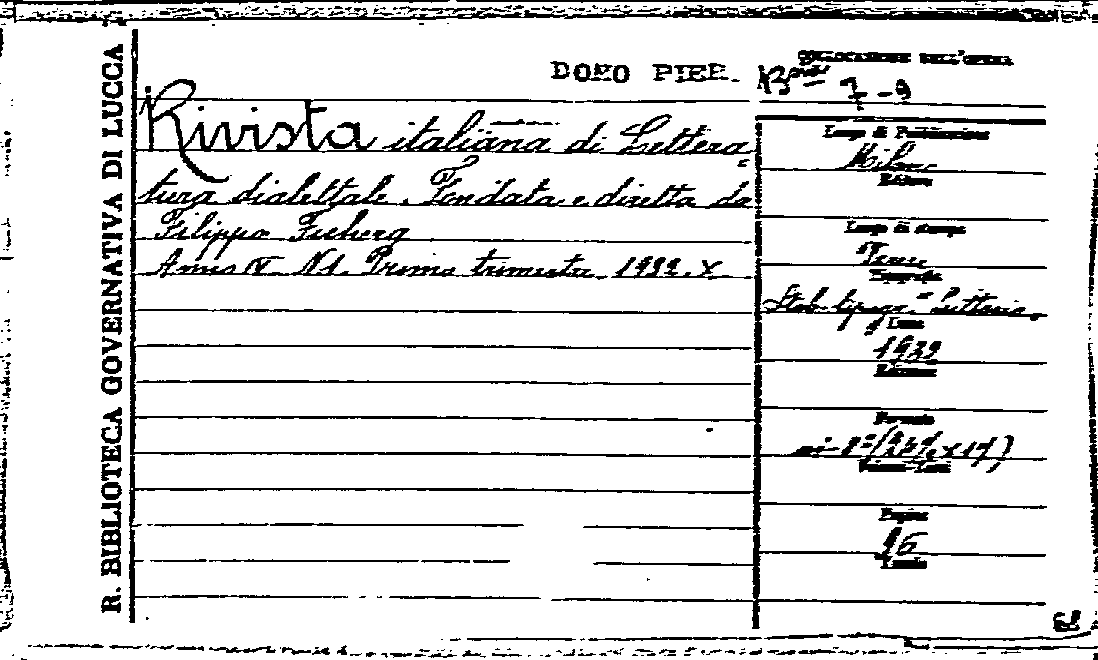 R. BIBLIOTECA GOVERNATIVA DI LUCCA
COLLOCAZIONE DELL'OPERA
DONO PIER.
7-9
Rivista italiana di Lettera=
tura dialettale. Fondata e diretta da
Filippo Fichera
Anno IV N 1. Primo trimestre 1932. X
Luogo di Pubblicazione
Milano
Editore
Luogo di stampa
Tipografia
Stab. tipogr.
Anno
1932
Edizione
Formato
in-8°
Volumi-Tomi
Pagine
96